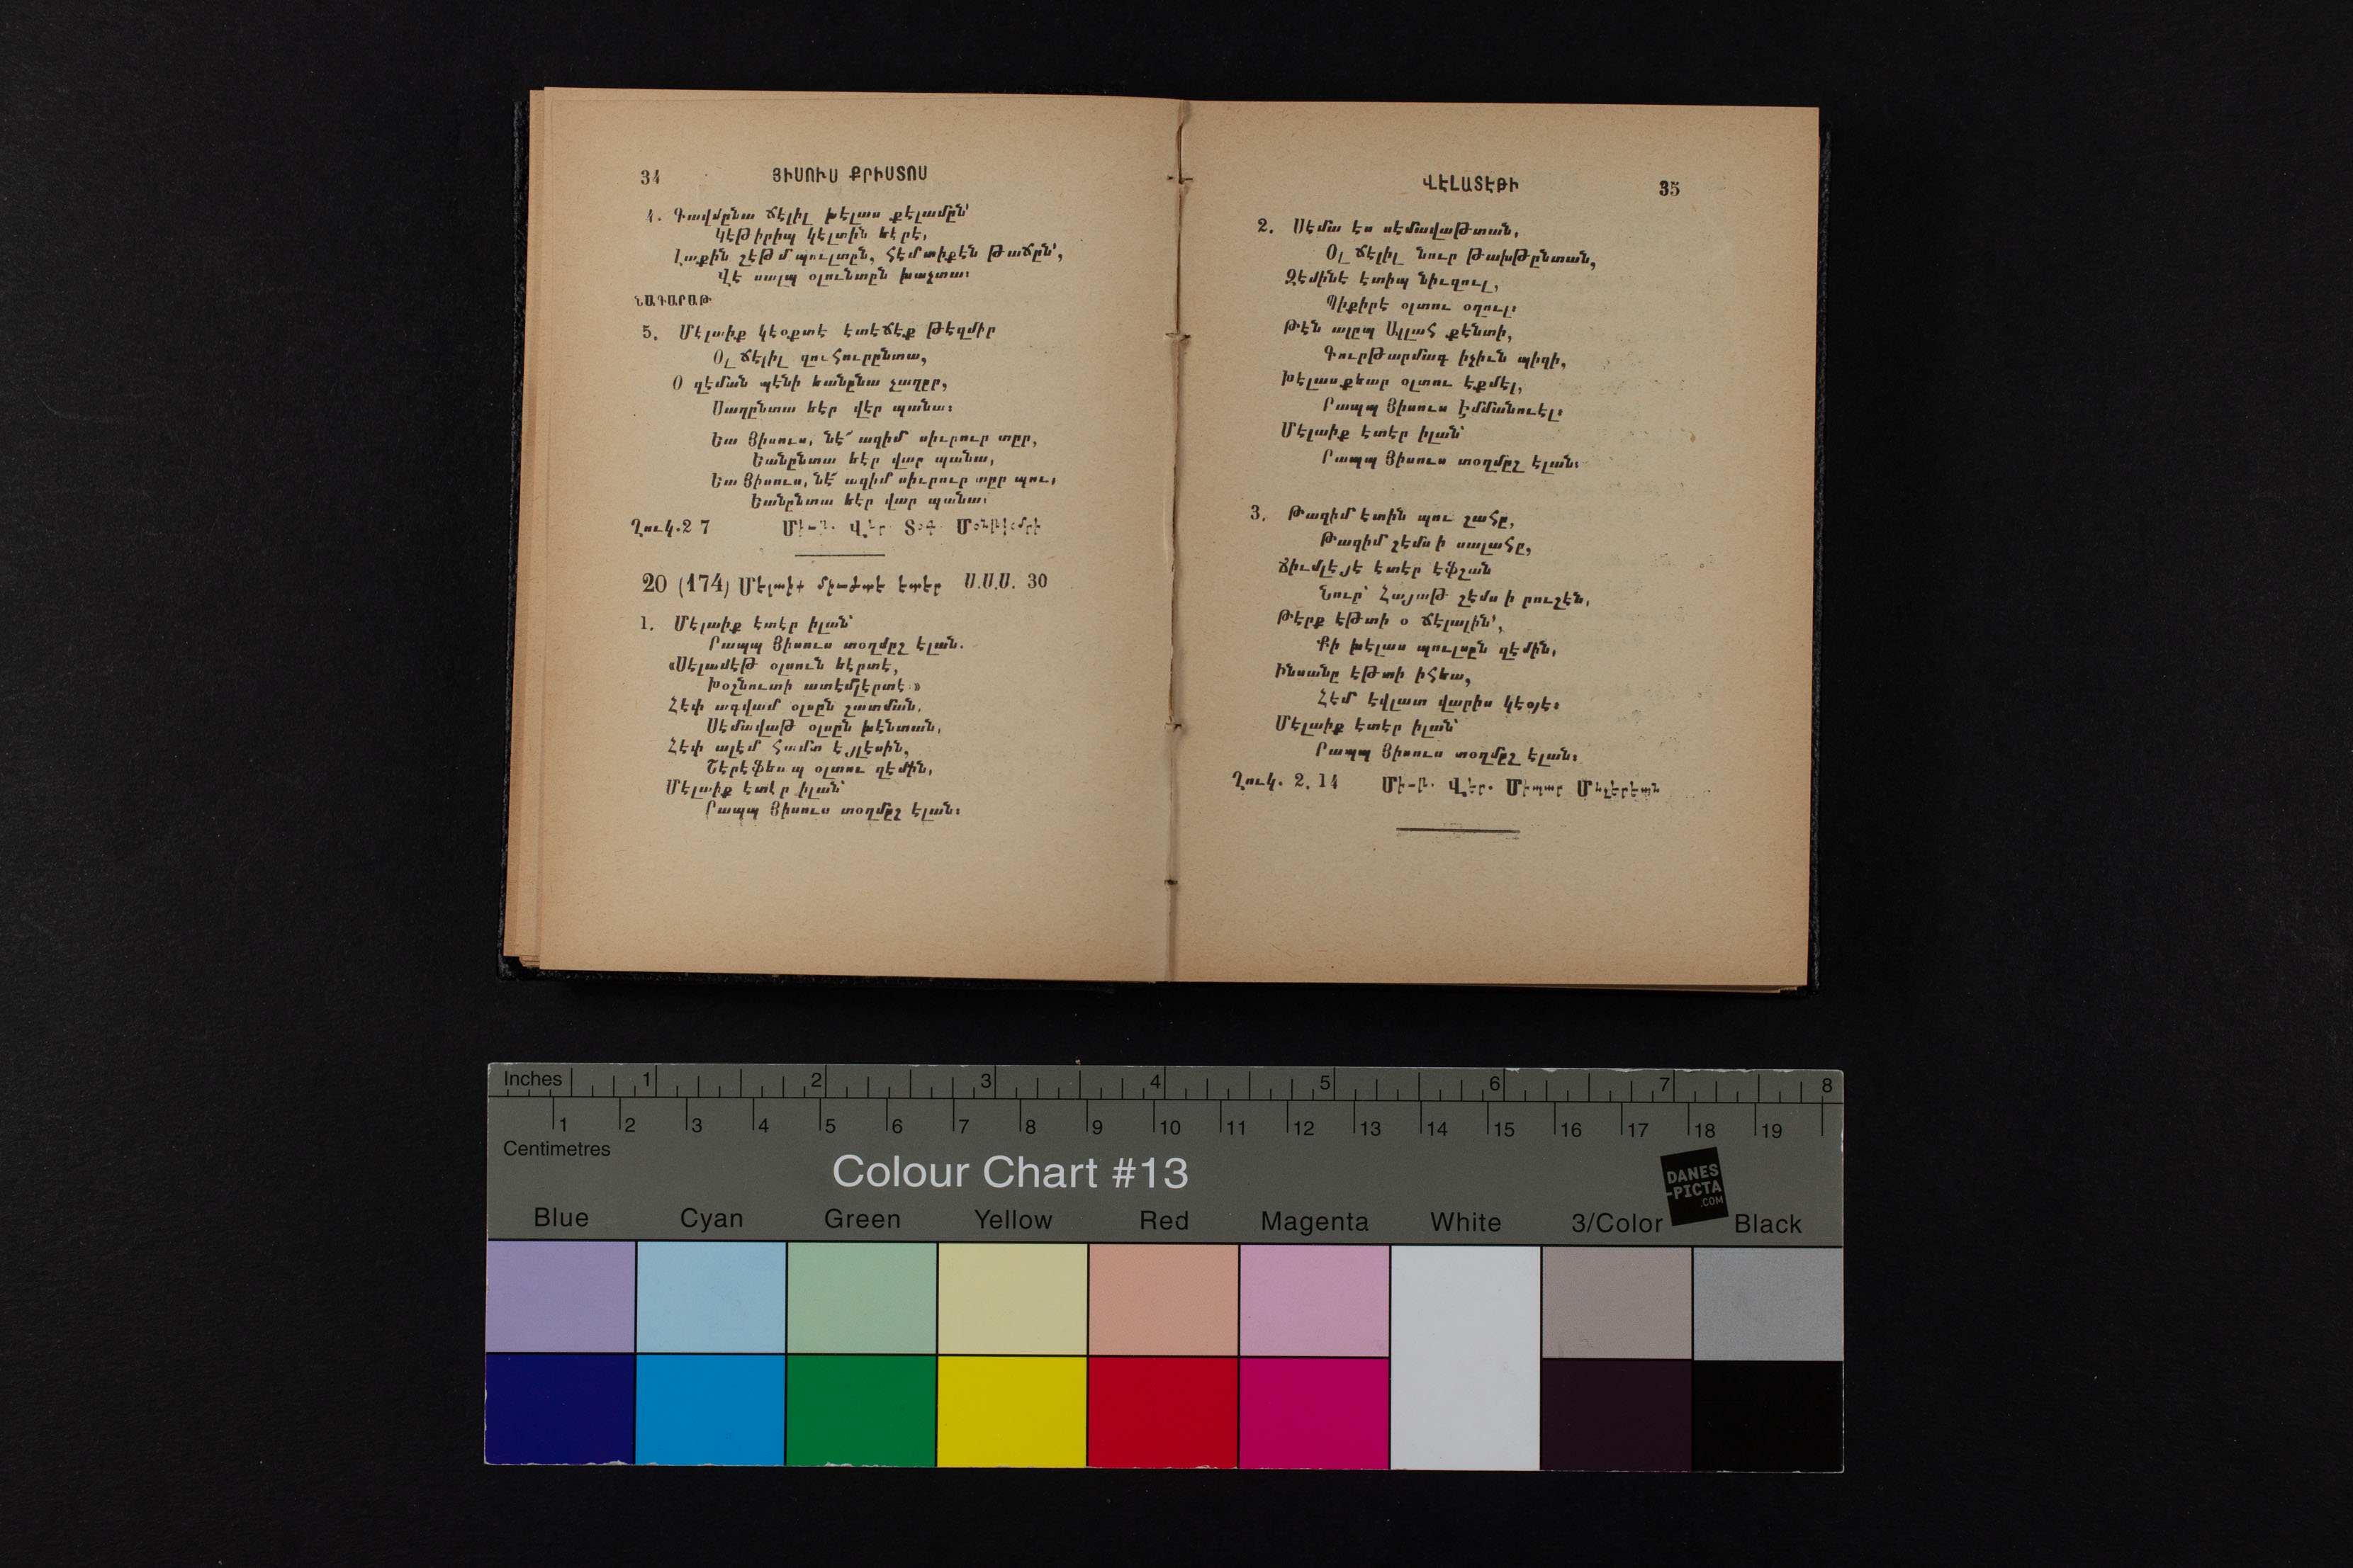 34 ՅԻՍՈՒՍ ՔՐԻՍՏՈՍ
4. Գավմընա ճէլիլ խէլաս քէլամըն՝
կէթիրիպ կէլտին եէրէ,
Լաքին չէթմ պուլտըն, հէմտիքէն թաճըն՝,
Վէ սալպ օլունտըն խաչտա։
ՆԱԳԱՐԱԹ
5. Մէլաիք կէօքտէ էտէճէք թէզմիր
Օլ ճէլիլ զուհուրընտա,
Օ զէման պէնի եանընա չաղըր,
Սաղընտա եէր վէր պանա։
Եա Յիսուս, նէ՜ ազիմ սիւրուր տըր,
Եանընտա եէր վար պանա,
Եա Յիսուս, նէ՜ ազիմ սիւրուր տըր պու,
Եանընտա եէր վար պանա։
Ղուկ.2 7
20 (174) Մէլաիք միւժտէ էտէր Ս.Ս.Ս. 30
1. Մէլաիք էտէր իլան՝
Րապպ Յիսուս տօղմըշ էլան.
«Սէլամէթ օլսուն եէրտէ,
Խօշնուտի ատէմլէրտէ.»
Հէփ ագվամ օլսըն շատման,
Սէմավաթ օլսըն խէնտան,
Հէփ ալէմ համտ էյլէսին,
Շէրէֆեապ օլտու զէմին,
Մէլաիք էտէր իլան՝
Րապպ Յիսուս տօղմըշ էլան։
ՎԷԼԱՏԷԹԻ 35
2. Սէմա էս սէմավաթտան,
Օլ ճէլիլ նուր թախթընտան,
Զէմինէ էտիպ նիւզուլ,
Պիքիրէ օլտու օղուլ։
Թէն ալըպ Ալլահ քէնտի,
Գուրթարմագ իչիւն պիզի,
Խէլասքեար օլտու էքմէլ,
Րապպ Յիսուս Էմմանուէլ։
Մէլաիք էտէր իլան՝
Րապպ Յիսուս տօղմըշ էլան։
3. Թազիմ էտին պու շահը,
Թազիմ շէմս ի սալահը,
Ճիւմլէյէ էտէր էֆշան
Նուր՝ հայաթ շէմս ի րուշէն,
Թէրք էթտի օ ճէլալին՝,
Քի խէլաս պուլսըն զէմին,
Ինսանը էթտի իհեա,
Հէմ էվլատ վարիս կէօյէ։
Մէլաիք էտէր իլան՝
Րապպ Յիսուս տօղմըշ էլան։
Ղուկ. 2. 14
Inches 1 2 3 4 5 6 7 8
1 2 3 4 5 6 7 8 9 10 11 12 13 14 15 16 17 18 19
Centimetres
Colour Chart #13
DANES
-PICTA
.COM
Blue Cyan Green Yellow Red Magenta White 3/Color Black